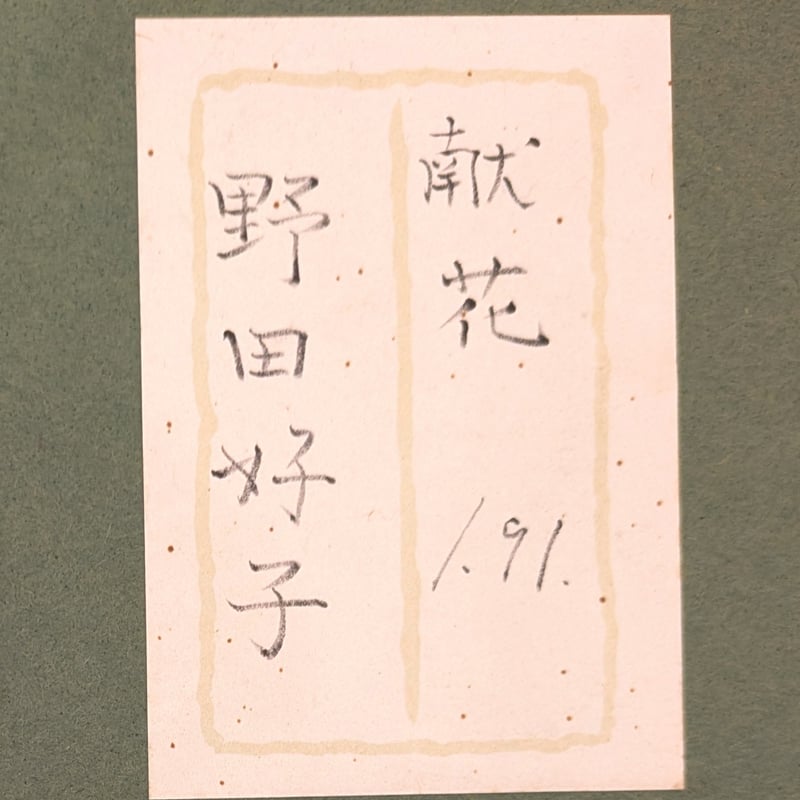 献花 1.91.
野田好子